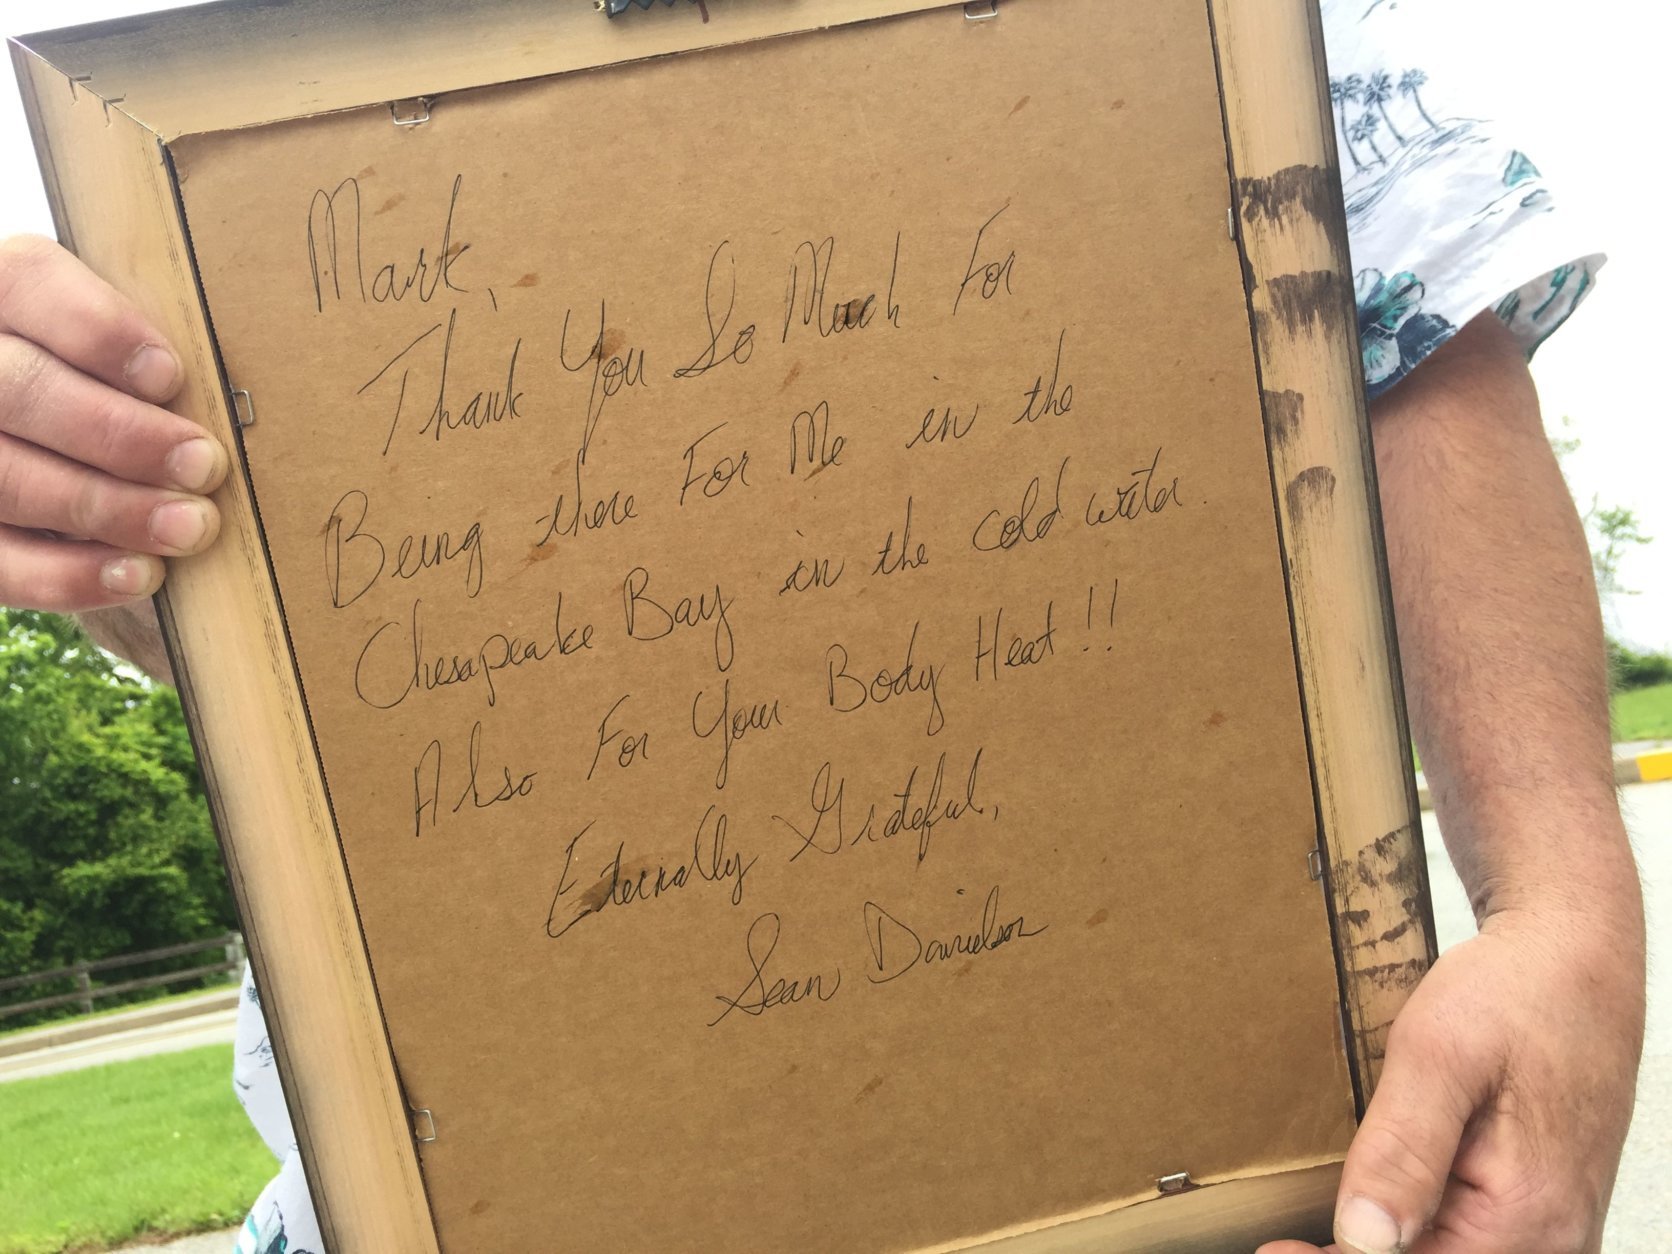 Mark,
Thank You So Much For
Being there For Me in the
Chesapeake Bay in the cold water.
Also For Your Body Heat!!
Eternally Grateful,
Sean Davidson